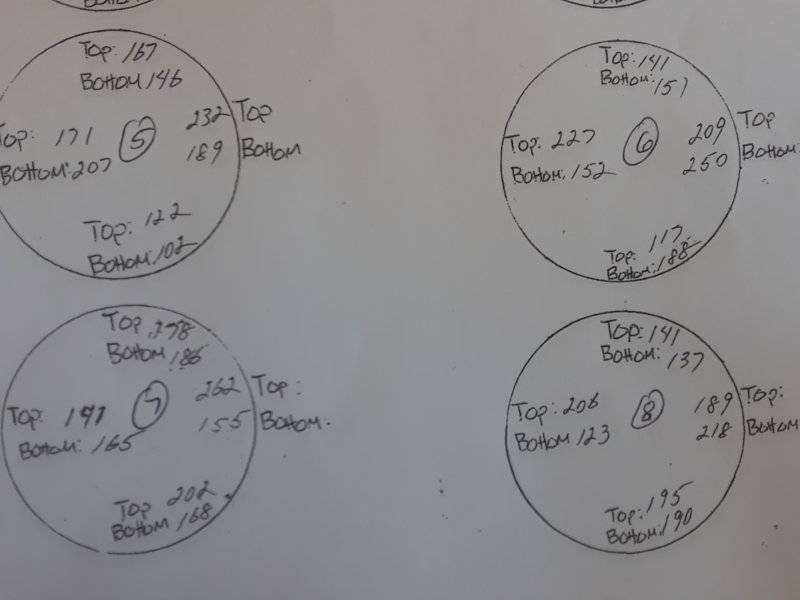 Top: 167
Bottom 146
232 Top
Top: 171
5
189 Bottom
Bottom: 207
Top: 122
Bottom: 102
Top: 141
Bottom: 151
209 Top
Top: 227
6
250 Bottom:
Bottom: 152
Top: 117
Bottom: 188
Top
Bottom 186
262 Top:
Top:
7
155 Bottom.
Bottom: 165
Top 202
Bottom 168
Top: 141
Bottom: 137
189 Top:
Top: 206
8
218 Bottom
Bottom 123
Top: 195
Bottom: 190